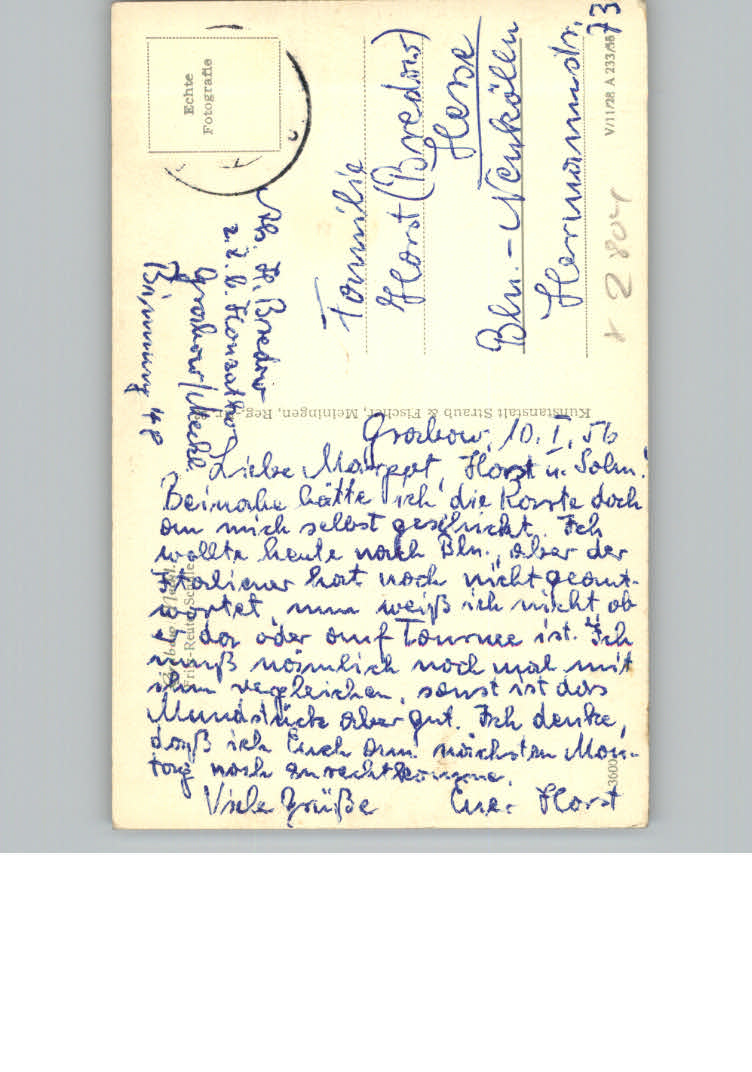 Echte
Fotografie
Familie
Horst (Bredow)
Hesse
Bln.-Neukölln
Hermannstr.
73
V/11/28 A 233/56
+ 2 804
Abs. H. Bredow
z. Z. b.
Grabow/Meckl.
48
Kunstanstalt Straub & Fischer, Meiningen, Reg.-
Grabow, 10. I. 56
Liebe Margot, Horst u. Sohn!
Beinahe hätte ich die Karte doch
an mich selbst geschickt. Ich
wollte heute nach Bln., aber der
Italiener hat noch nicht geant-
wortet, nun weiß ich nicht ob
er da oder auf Tournee ist. Ich
muß nämlich noch mal mit
ihm vergleichen, sonst ist das
Mundstück aber gut. Ich denke,
daß ich Euch am nächsten Mon-
tag noch zurechtkomme.
Viele Grüße Euer Horst
Grabow
Fritz-Reuter-Schule
3600